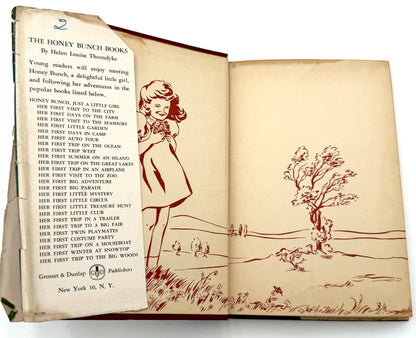 2
THE HONEY BUNCH BOOKS
By Helen Louise Thorndyke
Young readers will enjoy meeting
Honey Bunch, a delightful little girl,
and following her adventures in the
popular books listed below.
HONEY BUNCH, JUST A LITTLE GIRL
HER FIRST VISIT TO THE CITY
HER FIRST DAYS ON THE FARM
HER FIRST VISIT TO THE SEASHORE
HER FIRST LITTLE GARDEN
HER FIRST DAYS IN CAMP
HER FIRST AUTO TOUR
HER FIRST TRIP ON THE OCEAN
HER FIRST TRIP WEST
HER FIRST SUMMER ON AN ISLAND
HER FIRST TRIP ON THE GREAT LAKES
HER FIRST TRIP IN AN AIRPLANE
HER FIRST VISIT TO THE ZOO
HER FIRST BIG ADVENTURE
HER FIRST BIG PARADE
HER FIRST LITTLE MYSTERY
HER FIRST LITTLE CIRCUS
HER FIRST LITTLE TREASURE HUNT
HER FIRST LITTLE CLUB
HER FIRST TRIP IN A TRAILER
HER FIRST TRIP TO A BIG FAIR
HER FIRST TWIN PLAYMATES
HER FIRST COSTUME PARTY
HER FIRST TRIP ON A HOUSEBOAT
HER FIRST WINTER AT SNOWTOP
HER FIRST TRIP TO THE BIG WOODS
Grosset & Dunlap Publishers
New York 10, N. Y.